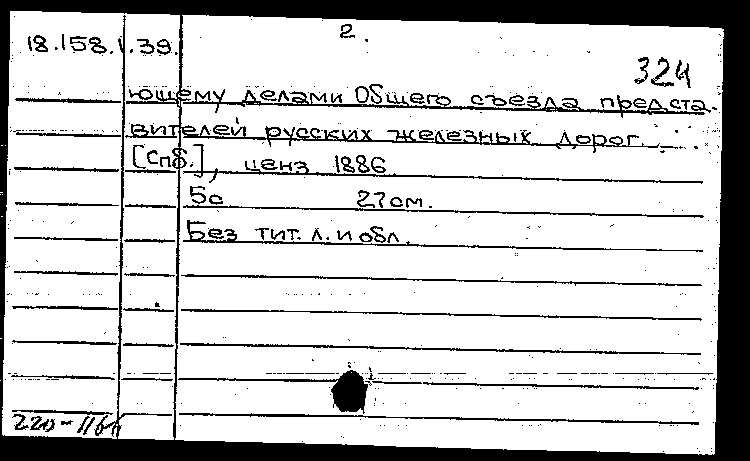 2.
18.158.1.39.
324
ющему делами Общего съезда предста-
вителей русских железных дорог.
[Спб.], ценз 1886.
5с 27см.
Без тит. л. и обл.